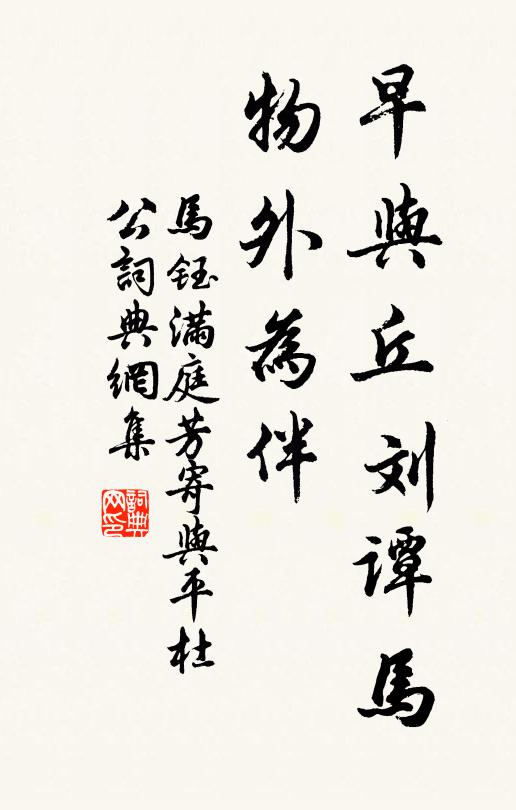 早與丘刘譚馬
物外為伴
馬鈺滿庭芳寄與平杜
公詞典網集
詞典网印